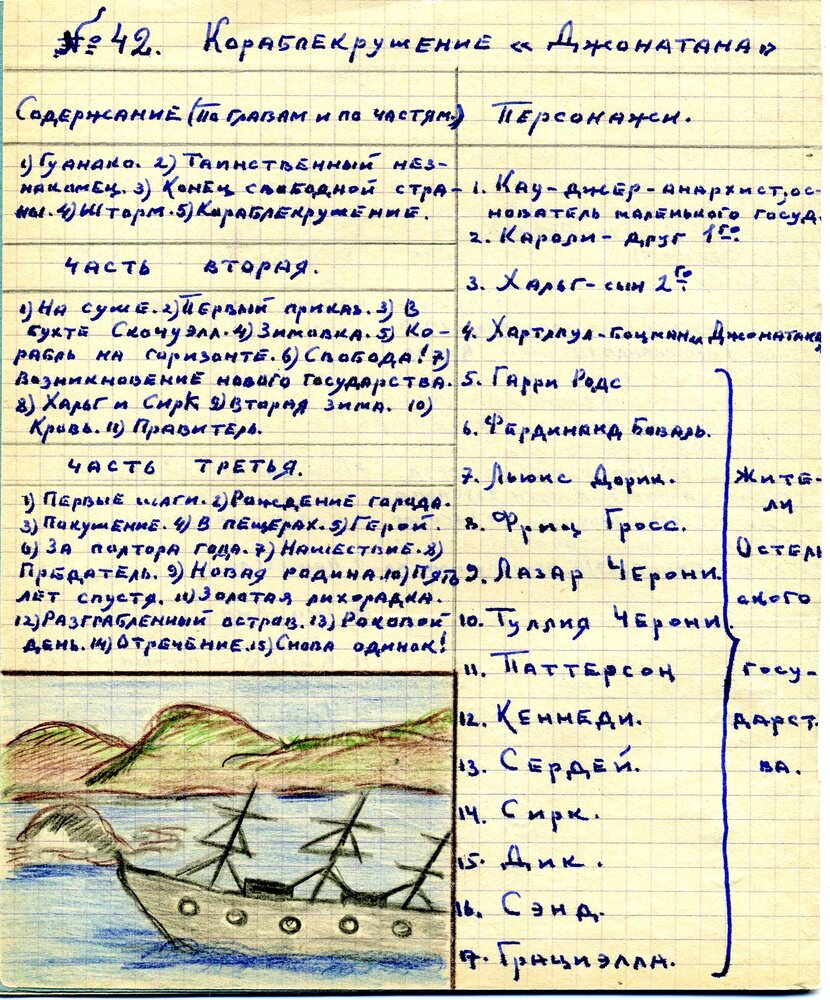 № 42. Кораблекрушение «Джонатана»
Содержание (по главам и по частям.)
1) Гуанако. 2) Таинственный нез-
накомец. 3) Конец свободной стра-
ны. 4) Шторм. 5) Кораблекрушение.
Часть вторая.
1) На суше. 2) Первый приказ. 3) В
бухте Скочуэлл. 4) Зимовка. 5) Ко-
рабль на горизонте. 6) Свобода! 7)
Возникновение нового государства.
8) Хальг и Сирк 9) Вторая зима. 10)
Кровь. 11) Правитель.
Часть третья.
1) Первые шаги. 2) Рождение города.
3) Покушение. 4) В пещерах. 5) Герой.
6) За полтора года. 7) Нашествие. 8)
Предатель. 9) Новая родина. 10) Пять
лет спустя. 11) Золотая лихорадка.
12) Разграбленный остров. 13) Роковой
день. 14) Отречение. 15) Снова одинок!
Персонажи.
1. Кау-джер - анархист, ос-
нователь маленького госуд.
2. Кароли - друг 1го.
3. Хальг - сын 2го.
4. Хартлпул - боцман „Джонатана“
5. Гарри Родс
6. Фердинанд Боваль.
7. Льюис Дорик.
8. Фриц Гросс.
9. Лазар Черони.
10. Туллия Черони.
11. Паттерсон
12. Кеннеди.
13. Сердей.
14. Сирк.
15. Дик.
16. Сэнд.
17. Грациэлла.
Жите-
ли
Остель
ского
госу-
дарст.
ва.